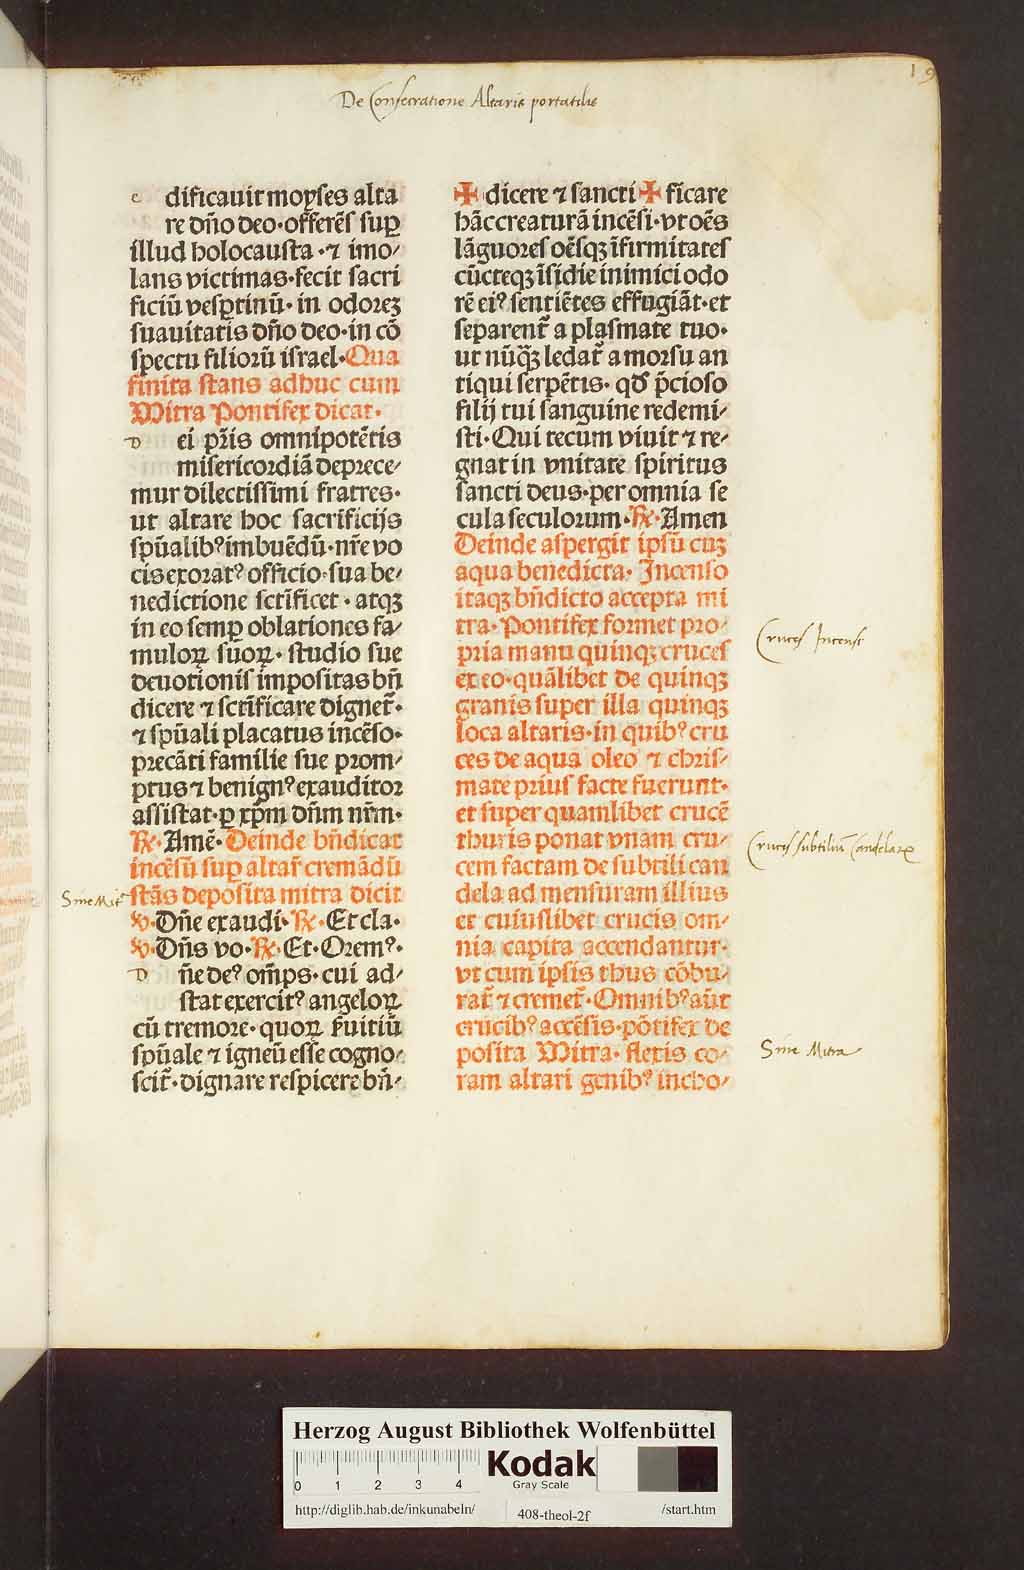 19
De Consecratione Altaris portatilis
e dificauit moyses alta
re dño deo·offerẽs suꝑ
illud holocausta·⁊ imo/
lans victimas·fecit sacri
ficiũ vesꝑtinũ·in odoreȝ
suauitatis dño deo·in cõ
spectu filiorũ israel·Qua
finita stans adhuc cum
Mitra Pontifex dicat·
D ei pr̃is omnipotẽtis
misericordiã deprece/
mur dilectissimi fratres·
ut altare hoc sacrificijs
spũalibꝰ imbuẽdũ·nr̃e vo
cis exoratꝰ officio·sua be/
nedictione sct̃ificet·atqȝ
in eo semꝑ oblationes fa/
muloꝝ suoꝝ·studio sue
deuotionis impositas bñ
dicere ⁊ sct̃ificare dignet̃·
⁊ spũali placatus incẽso·
precãti familie sue prom/
ptus ⁊ benignꝰ exauditor
assistat·ꝑ xp̃m dñm nr̃m·
℟·Amẽ·Deinde bñdicat
incẽsũ suꝑ altar̃ cremãdũ
Sine Mit̃
stãs deposita mitra dicit
℣·Dñe exaudi·℟·Et cla·
℣·Dñs vo·℟·Et·Oremꝰ·
D ñe deꝰ om̃ps·cui ad/
stat exercitꝰ angeloꝝ
cũ tremore·quoꝝ ẜuitiũ
spũale ⁊ igneũ esse cogno/
scit̃·dignare respicere bñ/
✠ dicere ⁊ sancti ✠ ficare
hãc creaturã incẽsi·vt oẽs
lãguores oẽsqȝ ĩfirmitates
cũcteqȝ ĩsidie inimici odo
rẽ eiꝰ sentiẽtes effugiãt·et
separent̃ a plasmate tuo·
ut nũqȝ ledat̃ a morsu an
tiqui serpẽtis·qđ p̃cioso
filij tui sanguine redemi/
sti·Qui tecum viuit ⁊ re/
gnat in vnitate spiritus
sancti deus·per omnia se
cula seculorum·℟·Amen
Deinde aspergit ipsũ cuȝ
aqua benedicta·Incenso
itaqȝ bñdicto accepta mi
tra·Pontifex formet pro/
Cruces Incensi
pria manu quinqȝ cruces
ex eo·quãlibet de quinqȝ
granis super illa quinqȝ
loca altaris·in quibꝰ cru
ces de aqua oleo ⁊ chris/
mate prius facte fuerunt·
et super quamlibet crucẽ
thuris ponat vnam cru/
Cruces subtiliũ Candelaꝝ
cem factam de subtili can
dela ad mensuram illius
et cuiuslibet crucis om/
nia capita accendantur·
vt cum ipsis thus cõbu/
rat̃ ⁊ cremet̃·Omnibꝰ aũt
crucibꝰ accẽsis·põtifex de
posita Mitra·flexis co/
Sine Mitra
ram altari genibꝰ incho/
Herzog August Bibliothek Wolfenbüttel
0 1 2 3 4
Kodak
Gray Scale
http://diglib.hab.de/inkunabeln/
408-theol-2f
/start.htm